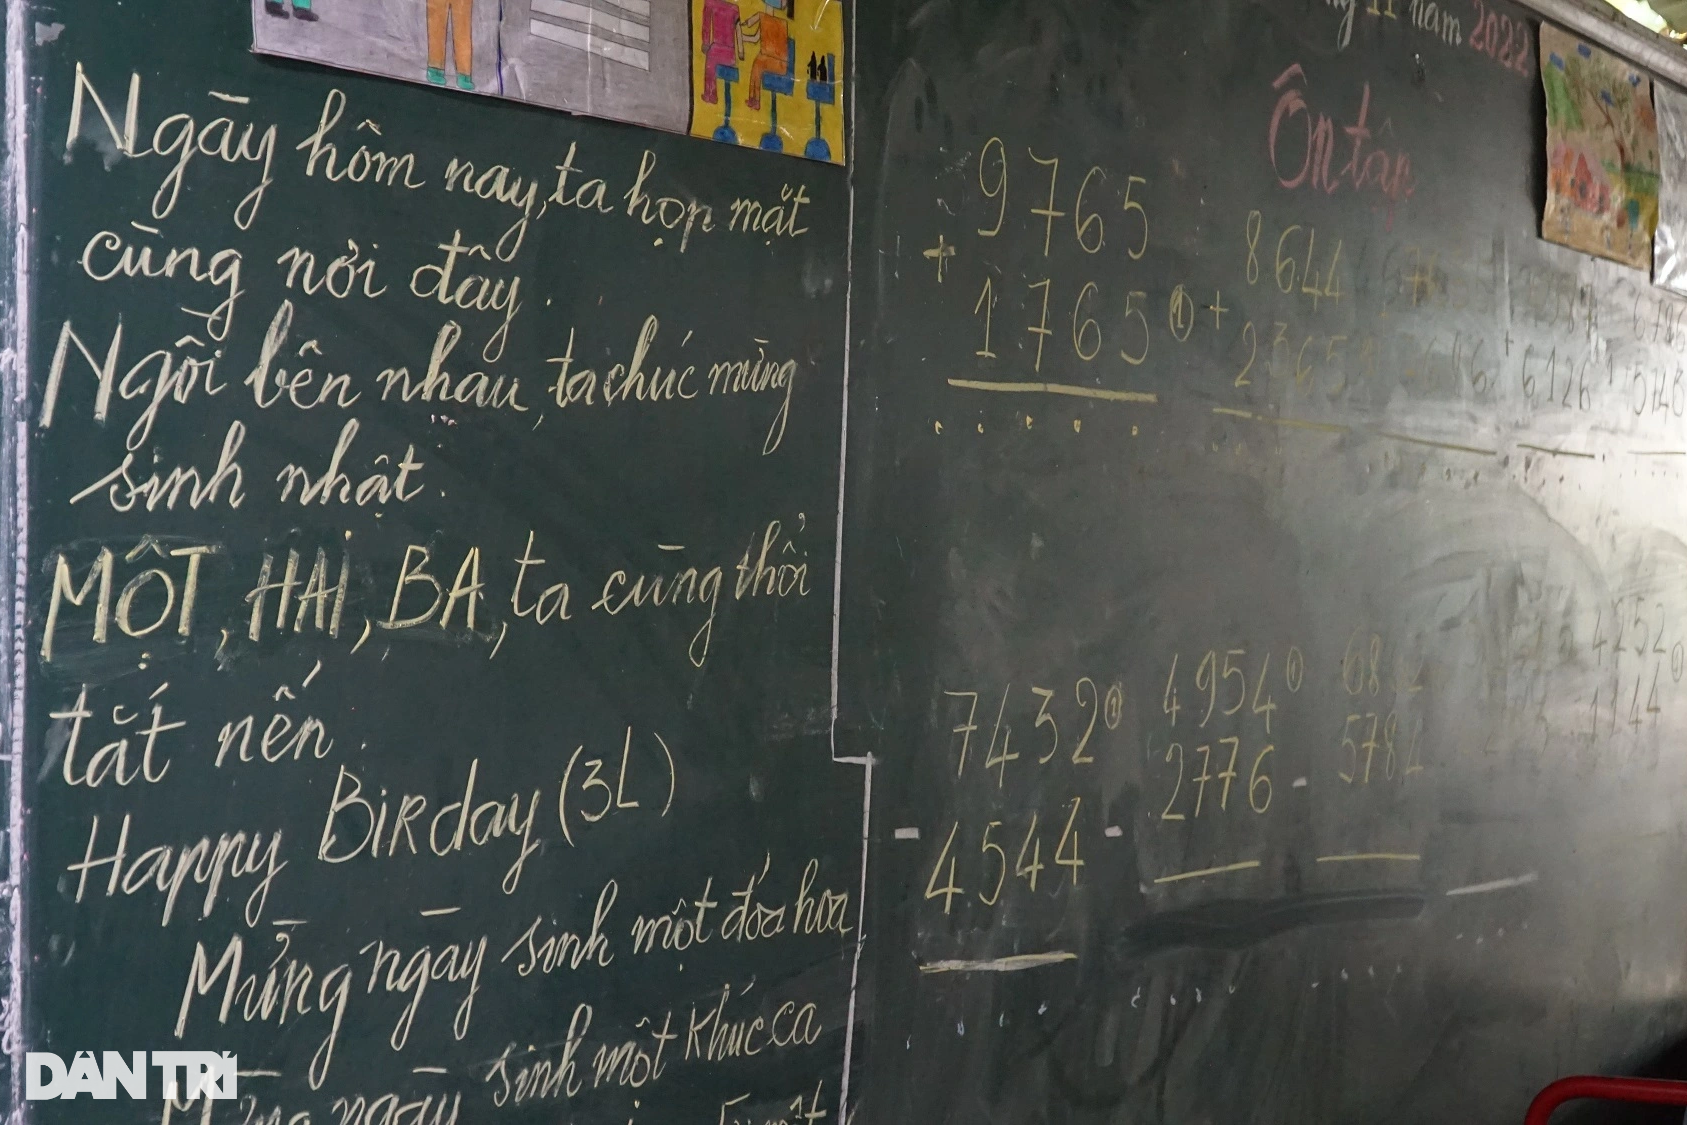 Ngày hôm nay, ta họp mặt
cùng nơi đây.
Ngồi bên nhau, ta chúc mừng
sinh nhật.
MỘT, HAI, BA, ta cùng thổi
tắt nến.
Happy BiRday (3L)
Mừng ngày sinh một đóa hoa
Mừng ngày sinh một khúc ca
11 năm 2022
Ôn tập
9765
+
1765 ①
8644
+
6126
5746
7432 ①
-
4544
4954 ①
-
2776
-
578
4252
1144 ①
DÂN TRÍ